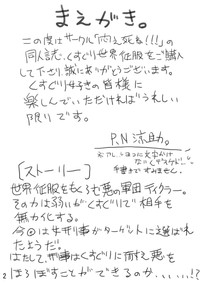 まえがき。
この度はサークル「悶え死ね!!!」の
同人誌、くすぐり世界征服をご購入
して下さり誠にありがとうございます。
くすぐり好きの皆様に
楽しんでいただければうれしい
限りです。
P.N 流助。
手書きですみません。
[ストーリー]
世界征服をもくろむ悪の軍団ティクラー。
その力は弱いがくすぐりで相手を
無力化する。
今回は女刑事がターゲットに選ばれ
たようだ。
はたして、刑事はくすぐりに耐え、悪を
ほろぼすことができるのか……!?
2